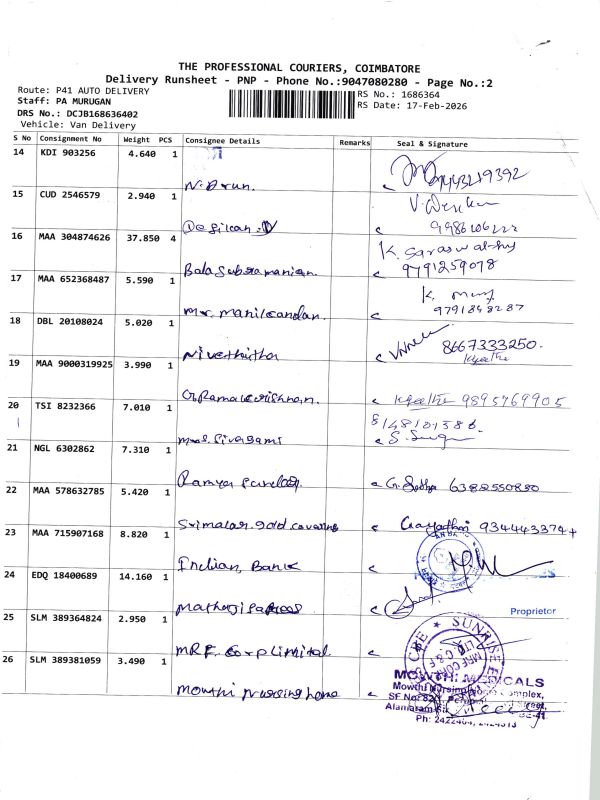 THE PROFESSIONAL COURIERS, COIMBATORE
Delivery Runsheet - PNP - Phone No.:9047080280 - Page No.:2
Route: P41 AUTO DELIVERY
RS No.: 1686364
Staff: PA MURUGAN
RS Date: 17-Feb-2026
DRS No.: DCJB168636402
Vehicle: Van Delivery
S No Consignment No Weight PCS Consignee Details Remarks Seal & Signature
14 KDI 903256 4.640 1
N. Arun. 9443219392
15 CUD 2546579 2.940 1
16 MAA 304874626 37.850 4
K. Saraswathy
Balasubramanian. 9791259078
17 MAA 652368487 5.590 1
Mr. Manikandan.
18 DBL 20108024 5.020 1
8667333250.
Nivethitha
19 MAA 9000319925 3.990 1
G. Ramakrishnan. 9895769905
20 TSI 8232366 7.010 1
8148101386.
Mrs. Sivagami
21 NGL 6302862 7.310 1
Ramya 6382550880
22 MAA 578632785 5.420 1
Srimalar gold covering Gayathri 934443374+
23 MAA 715907168 8.820 1
Indian Bank
24 EDQ 18400689 14.160 1
Proprietor
25 SLM 389364824 2.950 1
SUNRISE
MRF Corp Limited.
26 SLM 389381059 3.490 1
MOWTHI MEDICALS
Mowthi Nursing Home Complex,
Mowthi Nursing home